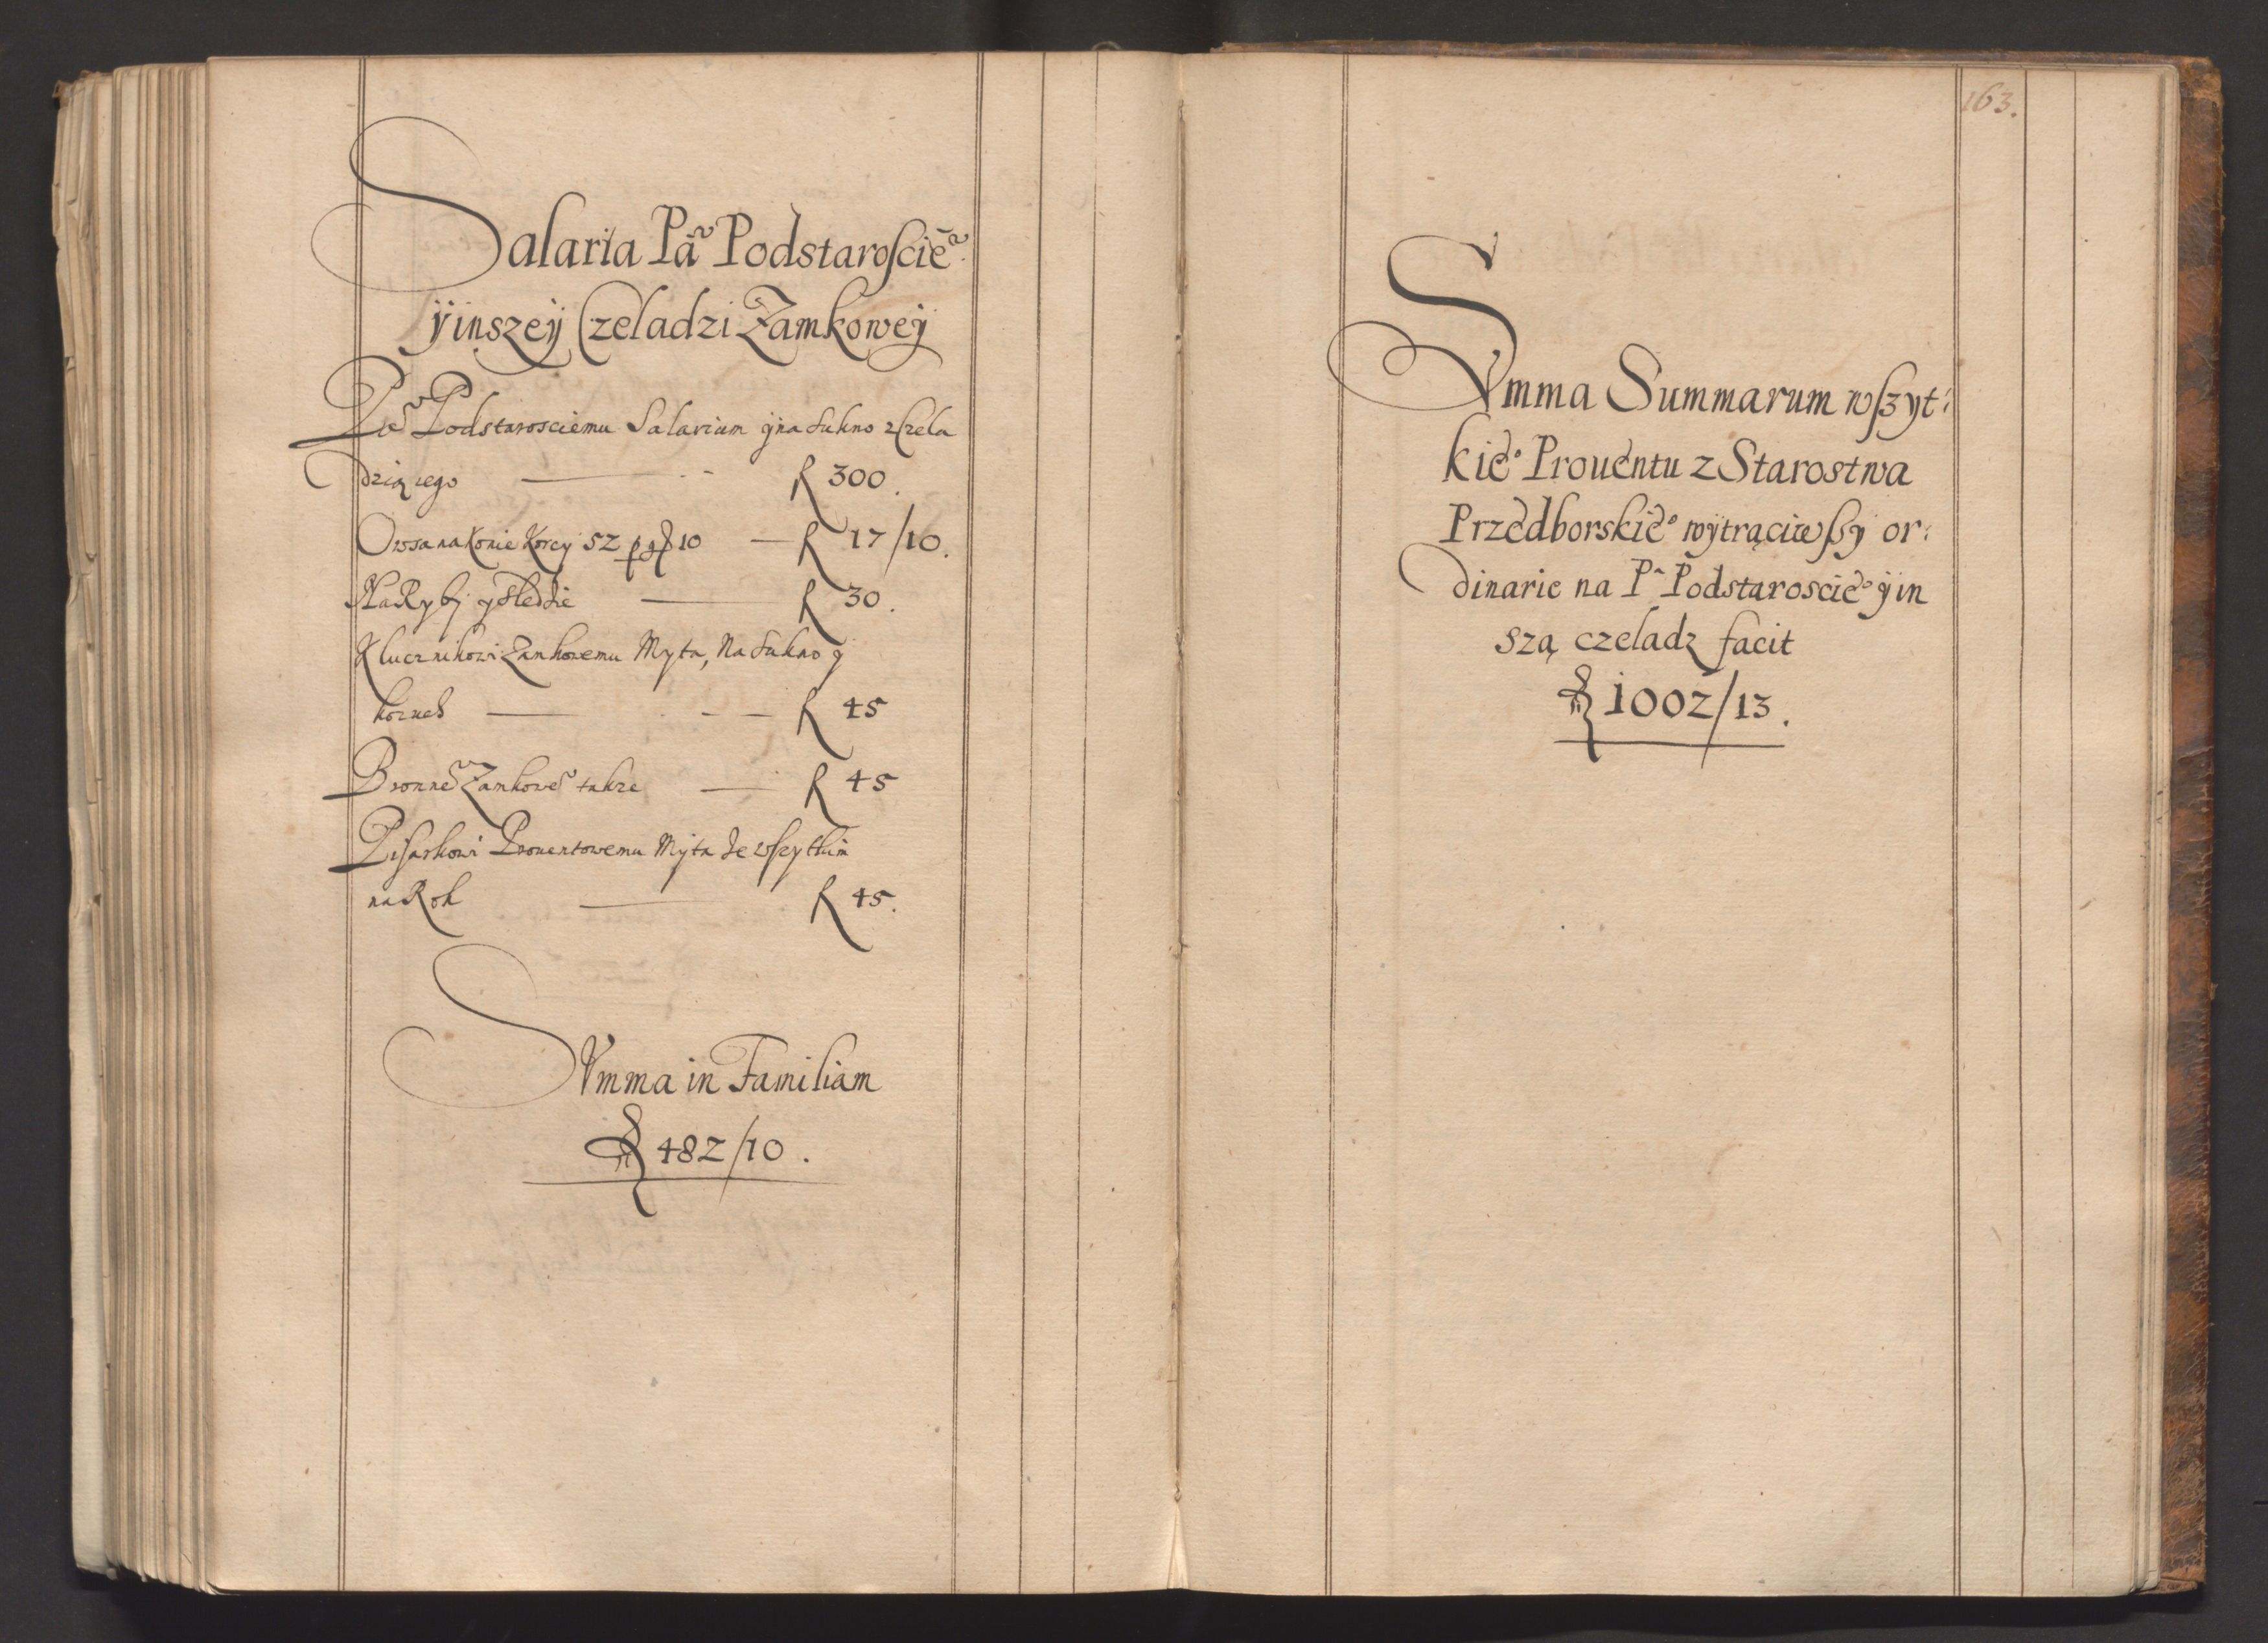 Salaria Pã Podstaroscie͠
ÿ inszeÿ Czeladzi Zamkoweÿ
Podstarosciemu Salarium ÿ na sukno z Czela
dzią iego — f 300.
Owsa na Konie Korcy 52 p g 10 — f 17/10.
Na Ryby y Sledzie — f 30.
Klucznikowi Zamkowemu Myta, Na Sukno y
kozuch — f 45
Bronne͠ Zamkowe͠ takze — f 45
Pisarkowi Prouentowemu Myta ze wszytkim
na Rok — f 45.
Summa in Familiam
f 482/10.
163.
Summa Summarum wszyt:
kie͠o Prouentu z Starostwa
Przedborskie͠o wÿtrąciwszy or:
dinarie na Pͣ Podstaroscie͠o ÿ in
szą czeladz facit
f 1002/13.